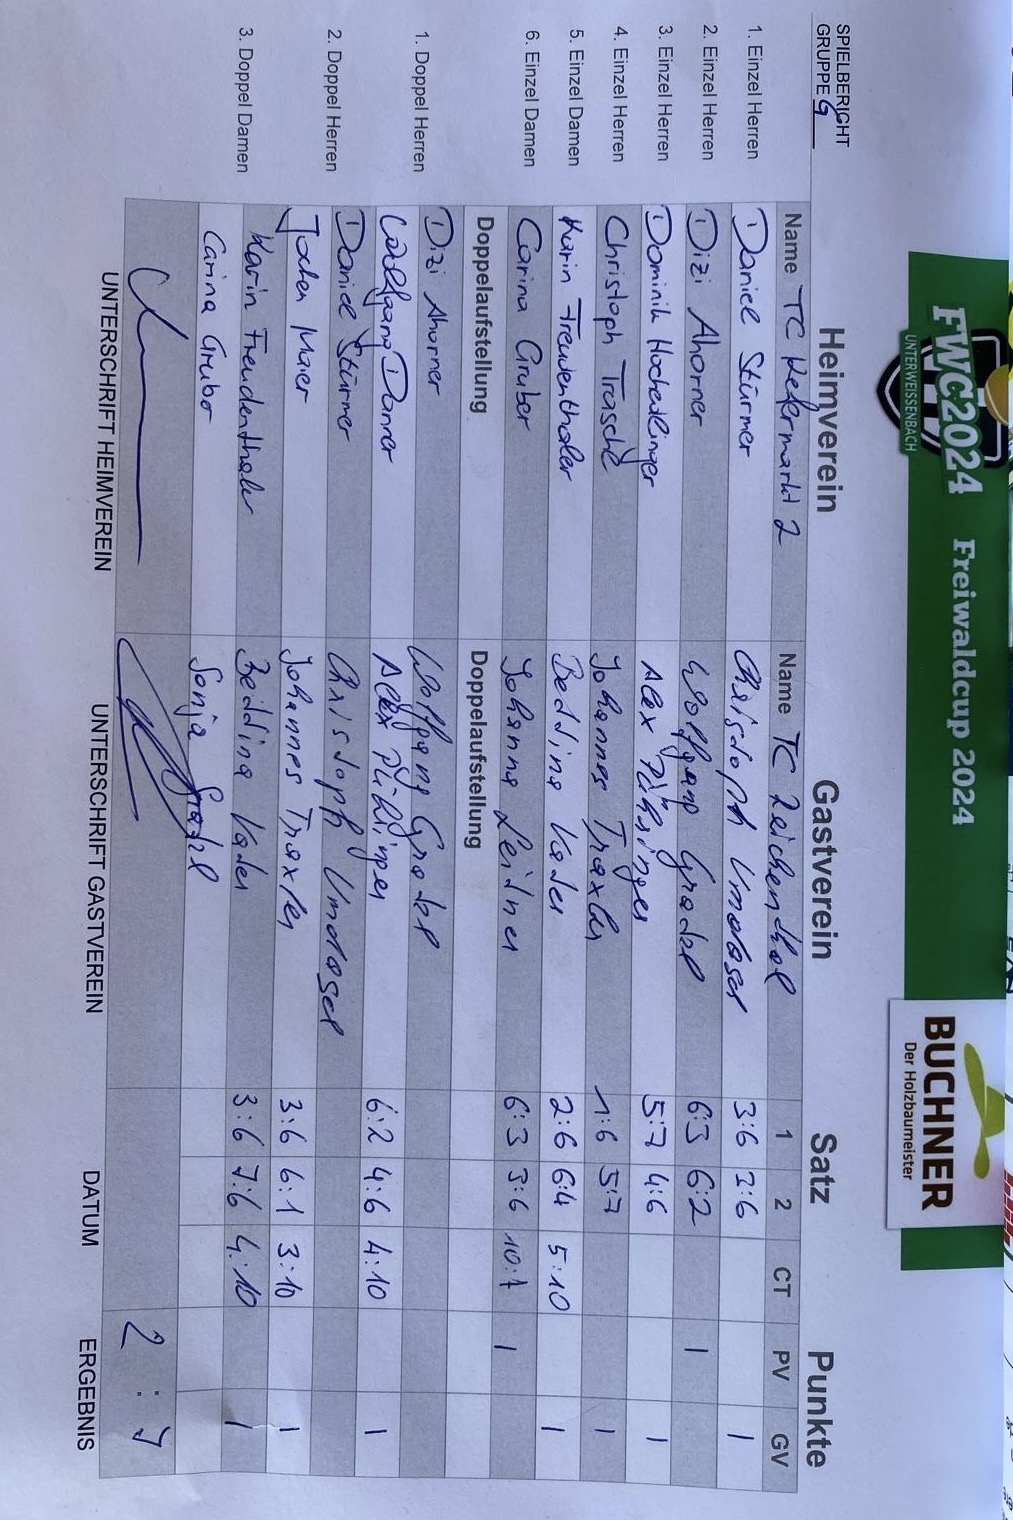 FWC2024 Freiwaldcup 2024
UNTERWEISSENBACH
BUCHNER
Der Holzbaumeister
SPIELBERICHT
GRUPPE G
Heimverein Gastverein Satz Punkte
Name TC Kefermarkt 2 Name TC Reichenthal 1 2 CT PV GV
1. Einzel Herren Daniel Stürmer 3:6 3:6 1
2. Einzel Herren Dizi Ahorner Wolfgang Gradl 6:3 6:2 1
3. Einzel Herren Dominik Hochedlinger Alex Pühringer 5:7 4:6 1
4. Einzel Herren Christoph Trasché Johannes Traxler 1:6 5:7 1
5. Einzel Damen Karin Freudenthaler Bettina Kader 2:6 6:4 5:10 1
6. Einzel Damen Carina Gruber Johanna Leitner 6:3 3:6 10:7 1
Doppelaufstellung Doppelaufstellung
1. Doppel Herren Dizi Ahorner Wolfgang Gradl
Wolfgang Danner Alex Pühringer 6:2 4:6 4:10 1
2. Doppel Herren Daniel Stürmer Christoph
Jochen Maier Johannes Traxler 3:6 6:1 3:10 1
3. Doppel Damen Karin Freudenthaler Bettina Kader 3:6 7:6 4:10 1
Carina Gruber Sonja Gradl
2 : 7
UNTERSCHRIFT HEIMVEREIN UNTERSCHRIFT GASTVEREIN DATUM ERGEBNIS